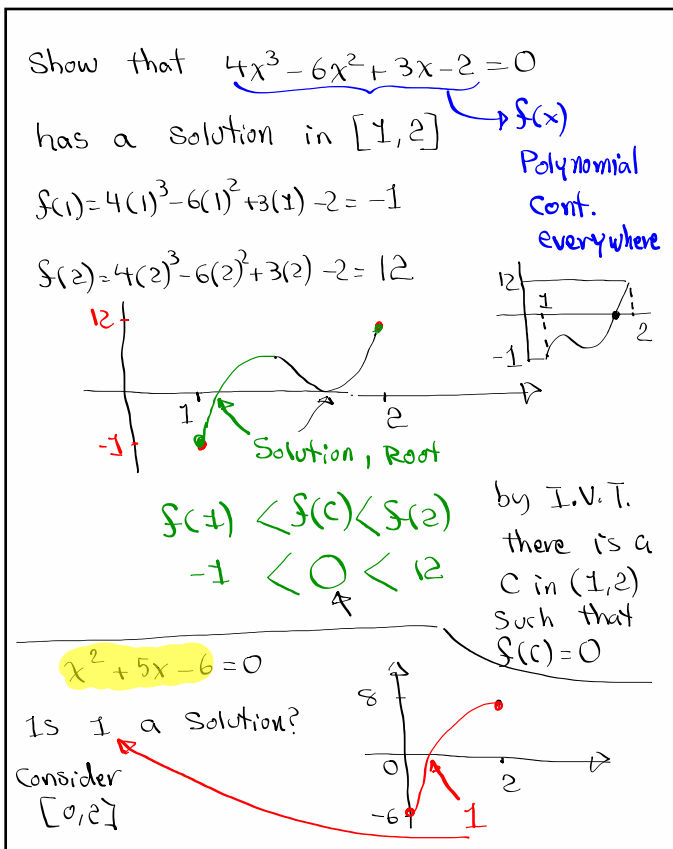 Show that 4x³ - 6x² + 3x - 2 = 0
→ f(x)
has a solution in [1,2]
Polynomial
Cont.
everywhere
f(1) = 4(1)³ - 6(1)² + 3(1) - 2 = -1
f(2) = 4(2)³ - 6(2)² + 3(2) - 2 = 12
12
1
2
-1
12
1
2
-1
Solution, Root
f(1) < f(c) < f(2)
-1 < 0 < 12
by I.V.T.
there is a
C in (1,2)
such that
f(c) = 0
x² + 5x - 6 = 0
Is 1 a solution?
Consider
[0,2]
8
0
2
-6
1